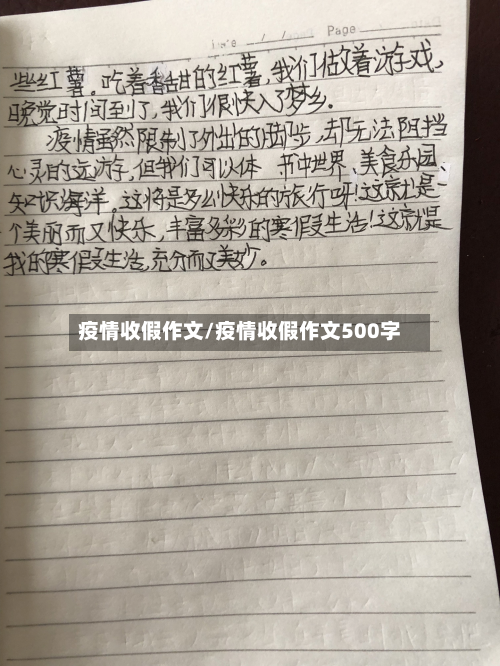 Date / / Page
些红薯。吃着香甜的红薯,我们做着游戏,
晚觉时间到了,我们很快入了梦乡。
疫情虽然限制了外出的脚步,却无法阻挡
心灵的远游,但我们可以体 书中世界、美食乐园、
知识海洋,这将是多么快乐的旅行呀!这就是一
个美丽而又快乐,丰富多彩的寒假生活!这就是
我的寒假生活,充分而又美妙。
疫情收假作文/疫情收假作文500字